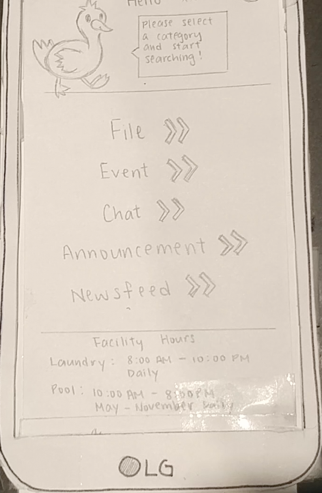 Hello
Please select
a category
and start
searching!
File
Event
Chat
Announcement
Newsfeed
Facility Hours
Laundry: 8:00 AM - 10:00 PM
Daily
Pool: 10:00 AM - 8:00PM
May - November Daily
LG